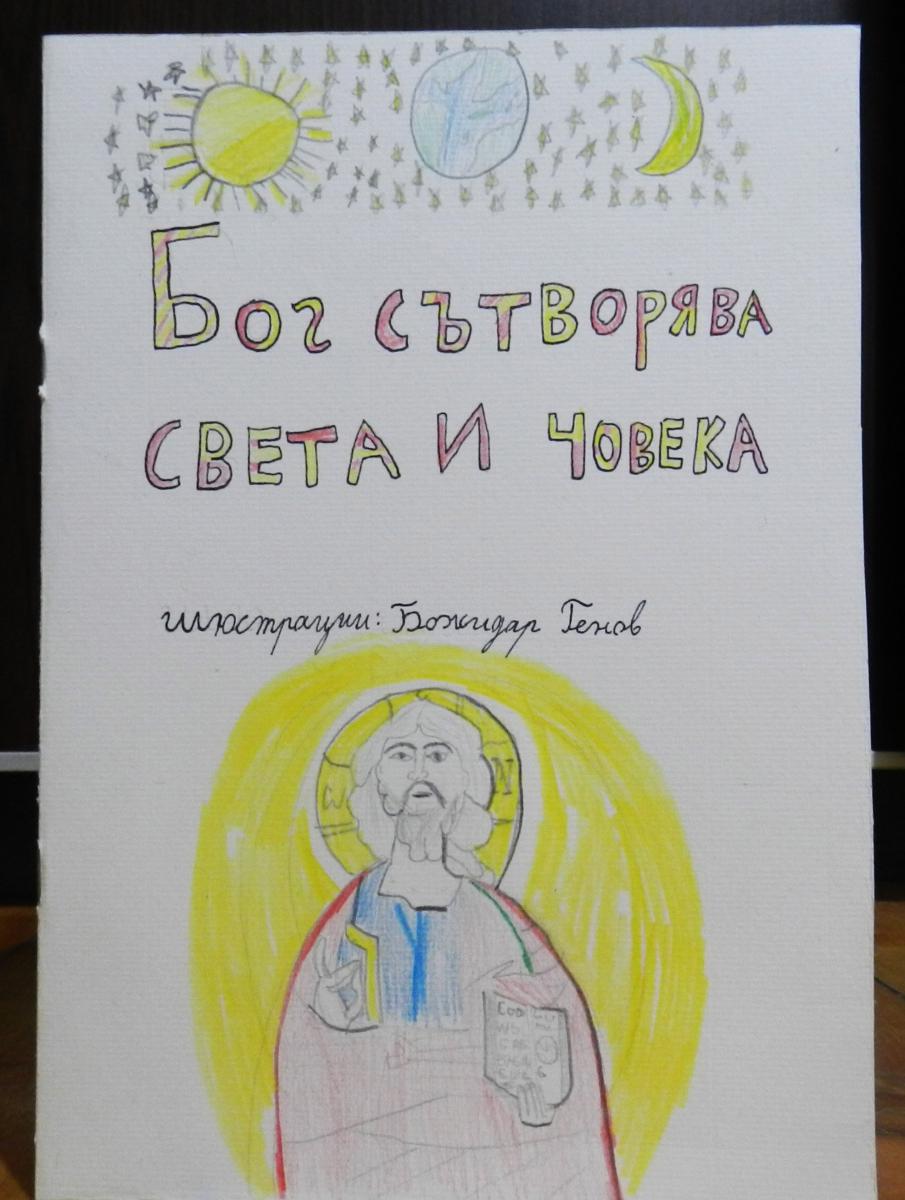 Бог сътворява
света и човека
илюстрации: Божидар Генов
ω Ν